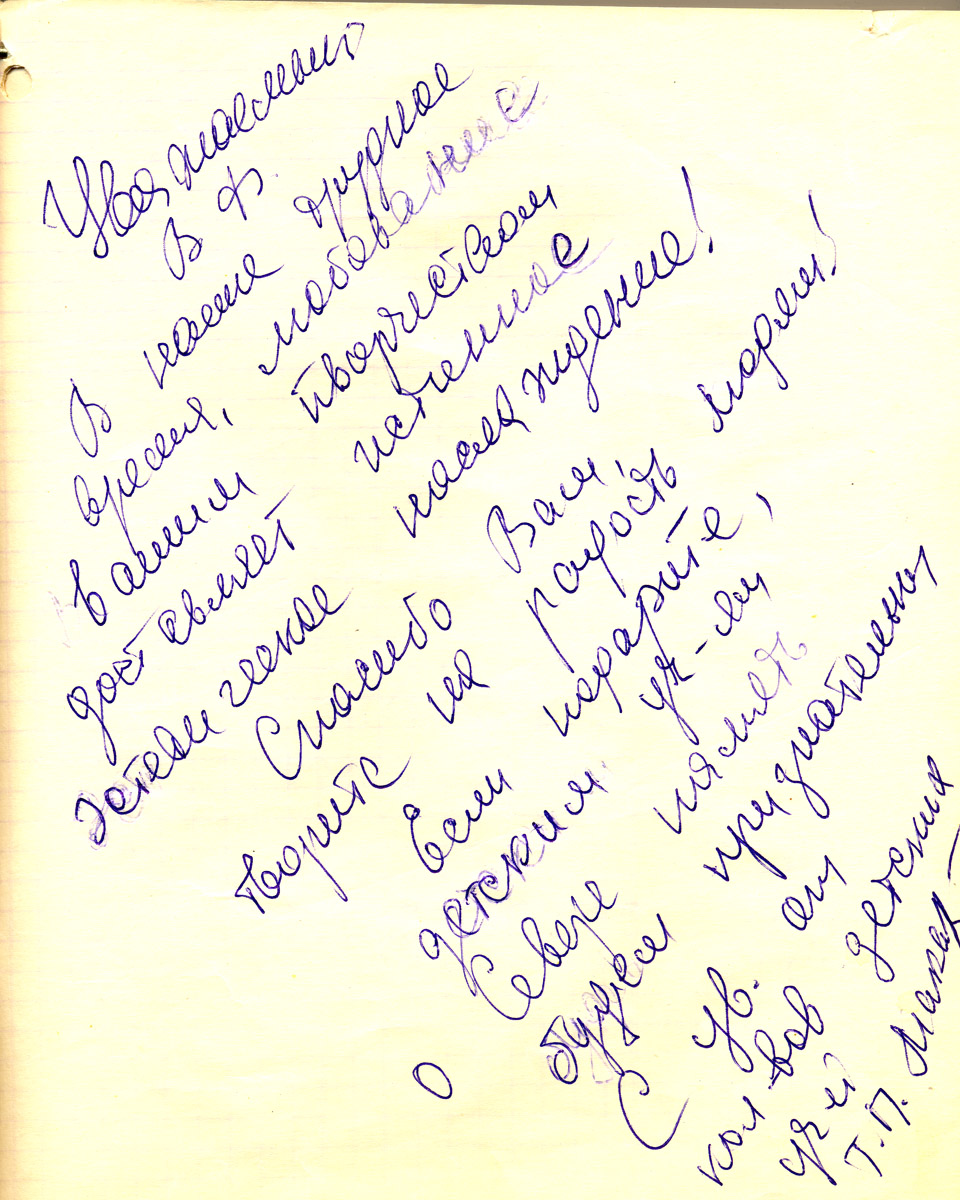 Уважаемый
В. Ф.
В наше трудное
время, любование
Вашим творчеством
доставляет истенное
эстетическое наслаждение!
Спасибо Вам,
творите на радость людям!
Если подарите,
детским уч-ям
Севера память
о
будем признательны,
С ув. от
кол-вов детских
уч-й
Т.П.